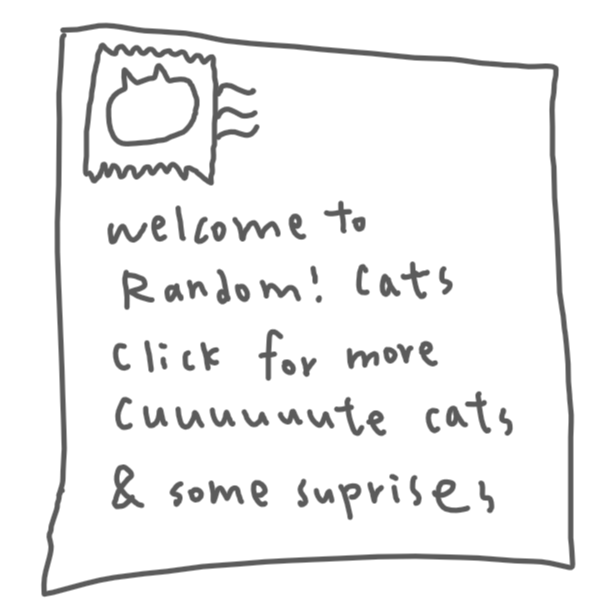 welcome to
Random! Cats
Click for more
Cuuuuuute cats
& some suprises